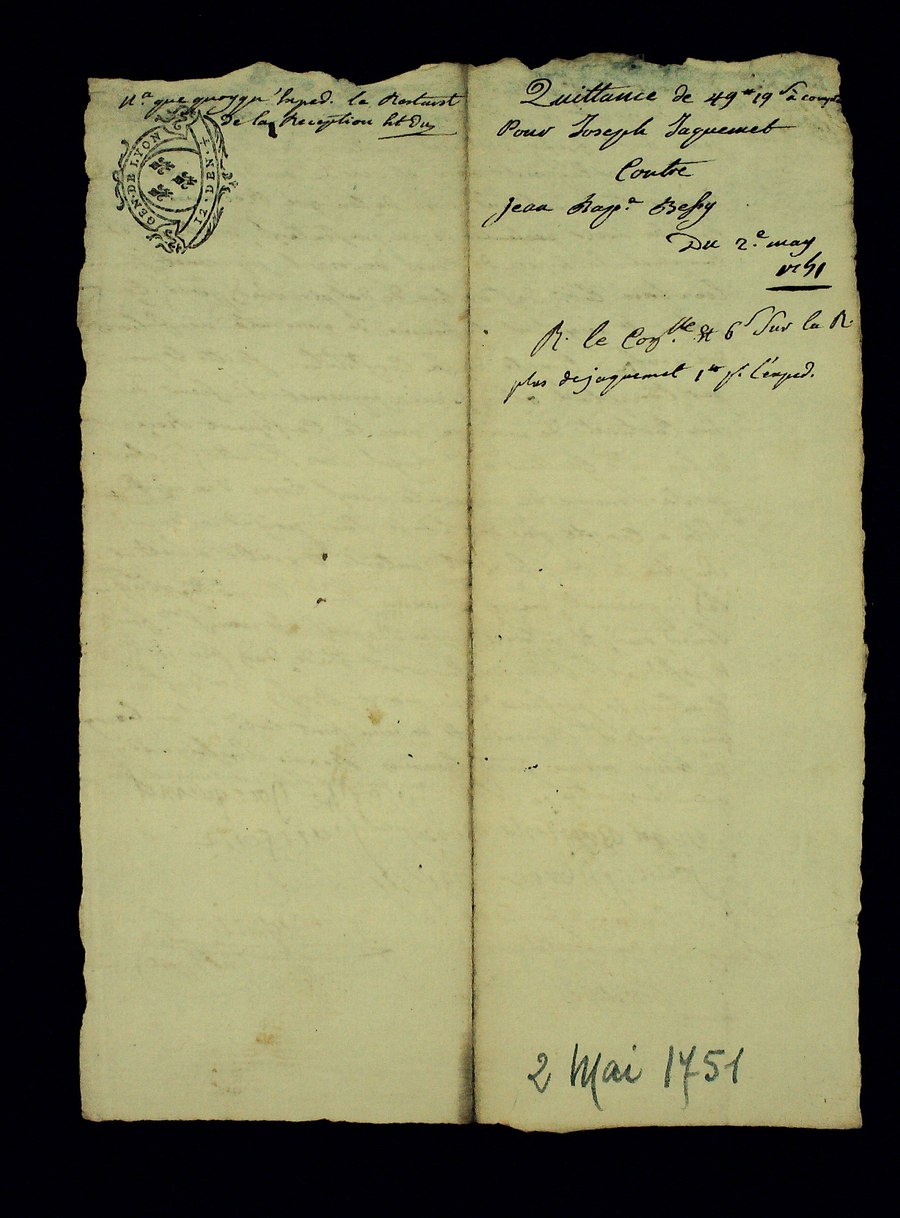 Nᵃ que quoyqu'Exped. le Restant
de la Reception est du
GEN. DE LYON
12. DEN. 4.
Quittance de 49ᵗᵗ 19ˢ à compte
Pour Joseph Jaquemet
Contre
Jean Bapᵗ Bessy
Du 2ᵉ may
1751
R. le Conˡˡᵉ et 6ˢ sur la R.
plus de jaquemet 1ᵗᵗ pʳ l'exped.
2 Mai 1751